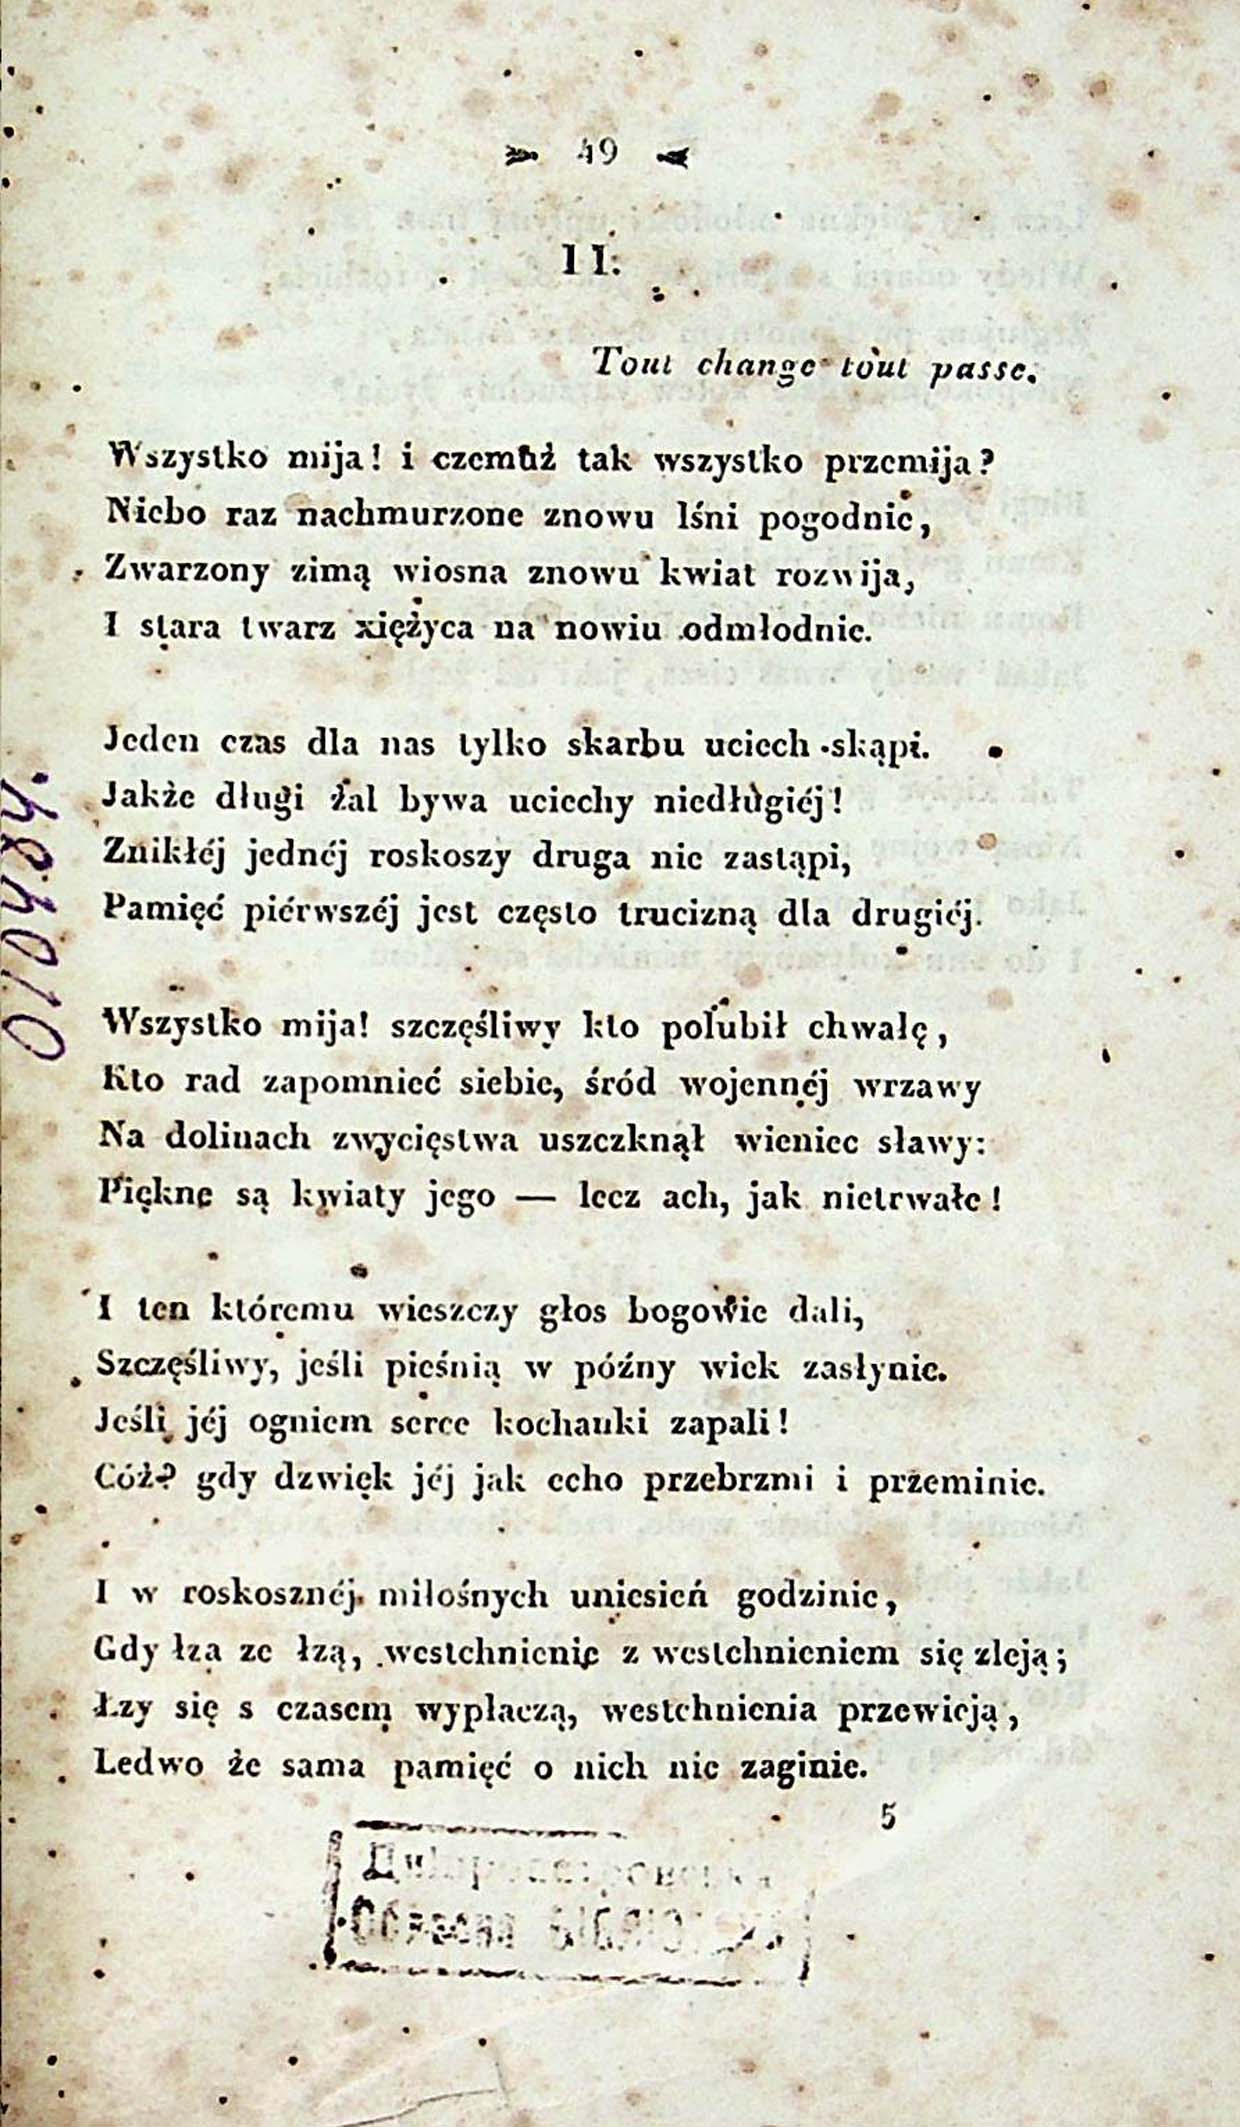 49
II.
Tout change tout passe.
Wszystko mija! i czemuż tak wszystko przemija?
Niebo raz nachmurzone znowu lśni pogodnie,
Zwarzony zimą wiosna znowu kwiat rozwija,
I stara twarz xiężyca na nowiu odmłodnie.
Jeden czas dla nas tylko skarbu uciech skąpi.
Jakże długi żal bywa uciechy niedługiéj!
Znikłéj jednéj roskoszy druga nie zastąpi,
Pamięć piérwszéj jest często trucizną dla drugiéj.
Wszystko mija! szczęśliwy kto polubił chwałę,
Kto rad zapomnieć siebie, śród wojennéj wrzawy
Na dolinach zwycięstwa uszczknął wieniec sławy:
Piękne są kwiaty jego — lecz ach, jak nietrwałe!
I ten któremu wieszczy głos bogowie dali,
Szczęśliwy, jeśli pieśnią w późny wiek zasłynie.
Jeśli jéj ogniem serce kochanki zapali!
Cóż? gdy dzwięk jéj jak echo przebrzmi i przeminie.
I w roskosznéj miłośnych uniesień godzinie,
Gdy łza ze łzą, westchnienie z westchnieniem się zleją;
Łzy się s czasem wypłaczą, westchnienia przewieją,
Ledwo że sama pamięć o nich nie zaginie.
5